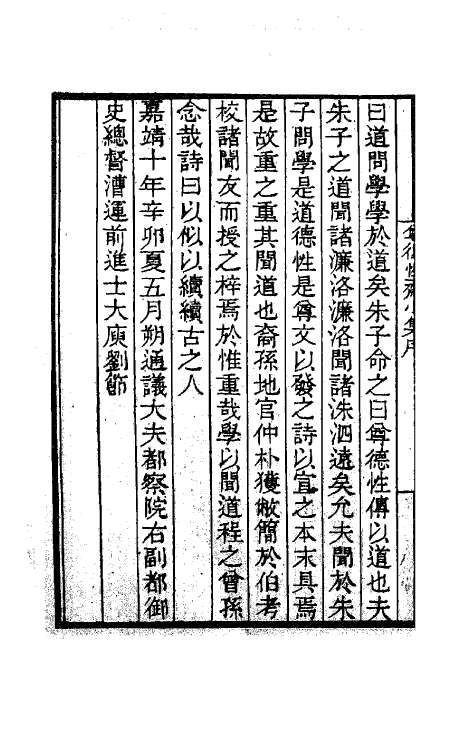 尊德性齋小集序
曰道問學學於道矣朱子命之曰尊德性傳以道也夫
朱子之道聞諸濂洛濂洛聞諸洙泗遠矣允夫聞於朱
子問學是道德性是尊文以發之詩以宣之本末具焉
是故重之重其聞道也裔孫地官仲朴獲敝簡於伯考
校諸聞友而授之梓焉於惟重哉學以聞道程之曾孫
念哉詩曰以似以續續古之人
嘉靖十年辛卯夏五月朔通議大夫都察院右副都御
史總督漕運前進士大庾劉節